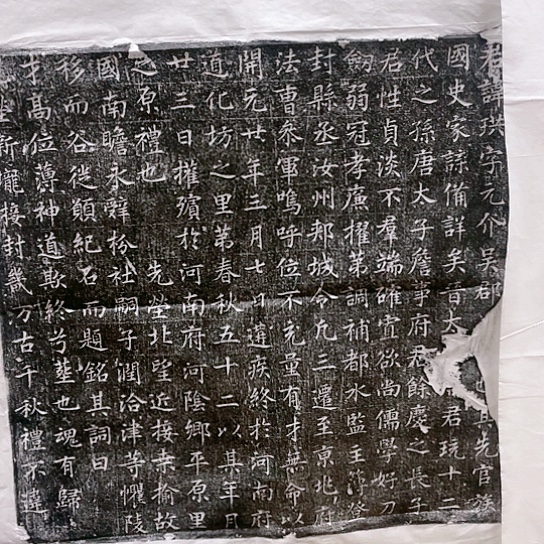 君諱瑛字元介吳郡也其先官族
國史家諜備詳矣晉太君玩十二
代之孫唐太子詹事府君餘慶之長子
君性貞淡不羣端確寡欲尚儒學好刀
劒弱冠孝廉擢第調補都水監主簿登
封縣丞汝州郟城令凡三遷至京北府
法曹叅軍嗚呼位不充量有才無命以
開元廿年三月七日遘疾終於河南府
道化坊之里第春秋五十二以其年月
廿三日權殯於河南府河陰鄉平原里
之原禮也先塋北望近接桒榆故
國南瞻永辭枌社嗣子潤洽津等懼陵
移而谷徙願紀石而題銘其詞曰
才高位薄神道欺終兮塟也魂有歸
坐新壠接封幾万古千秋禮不違